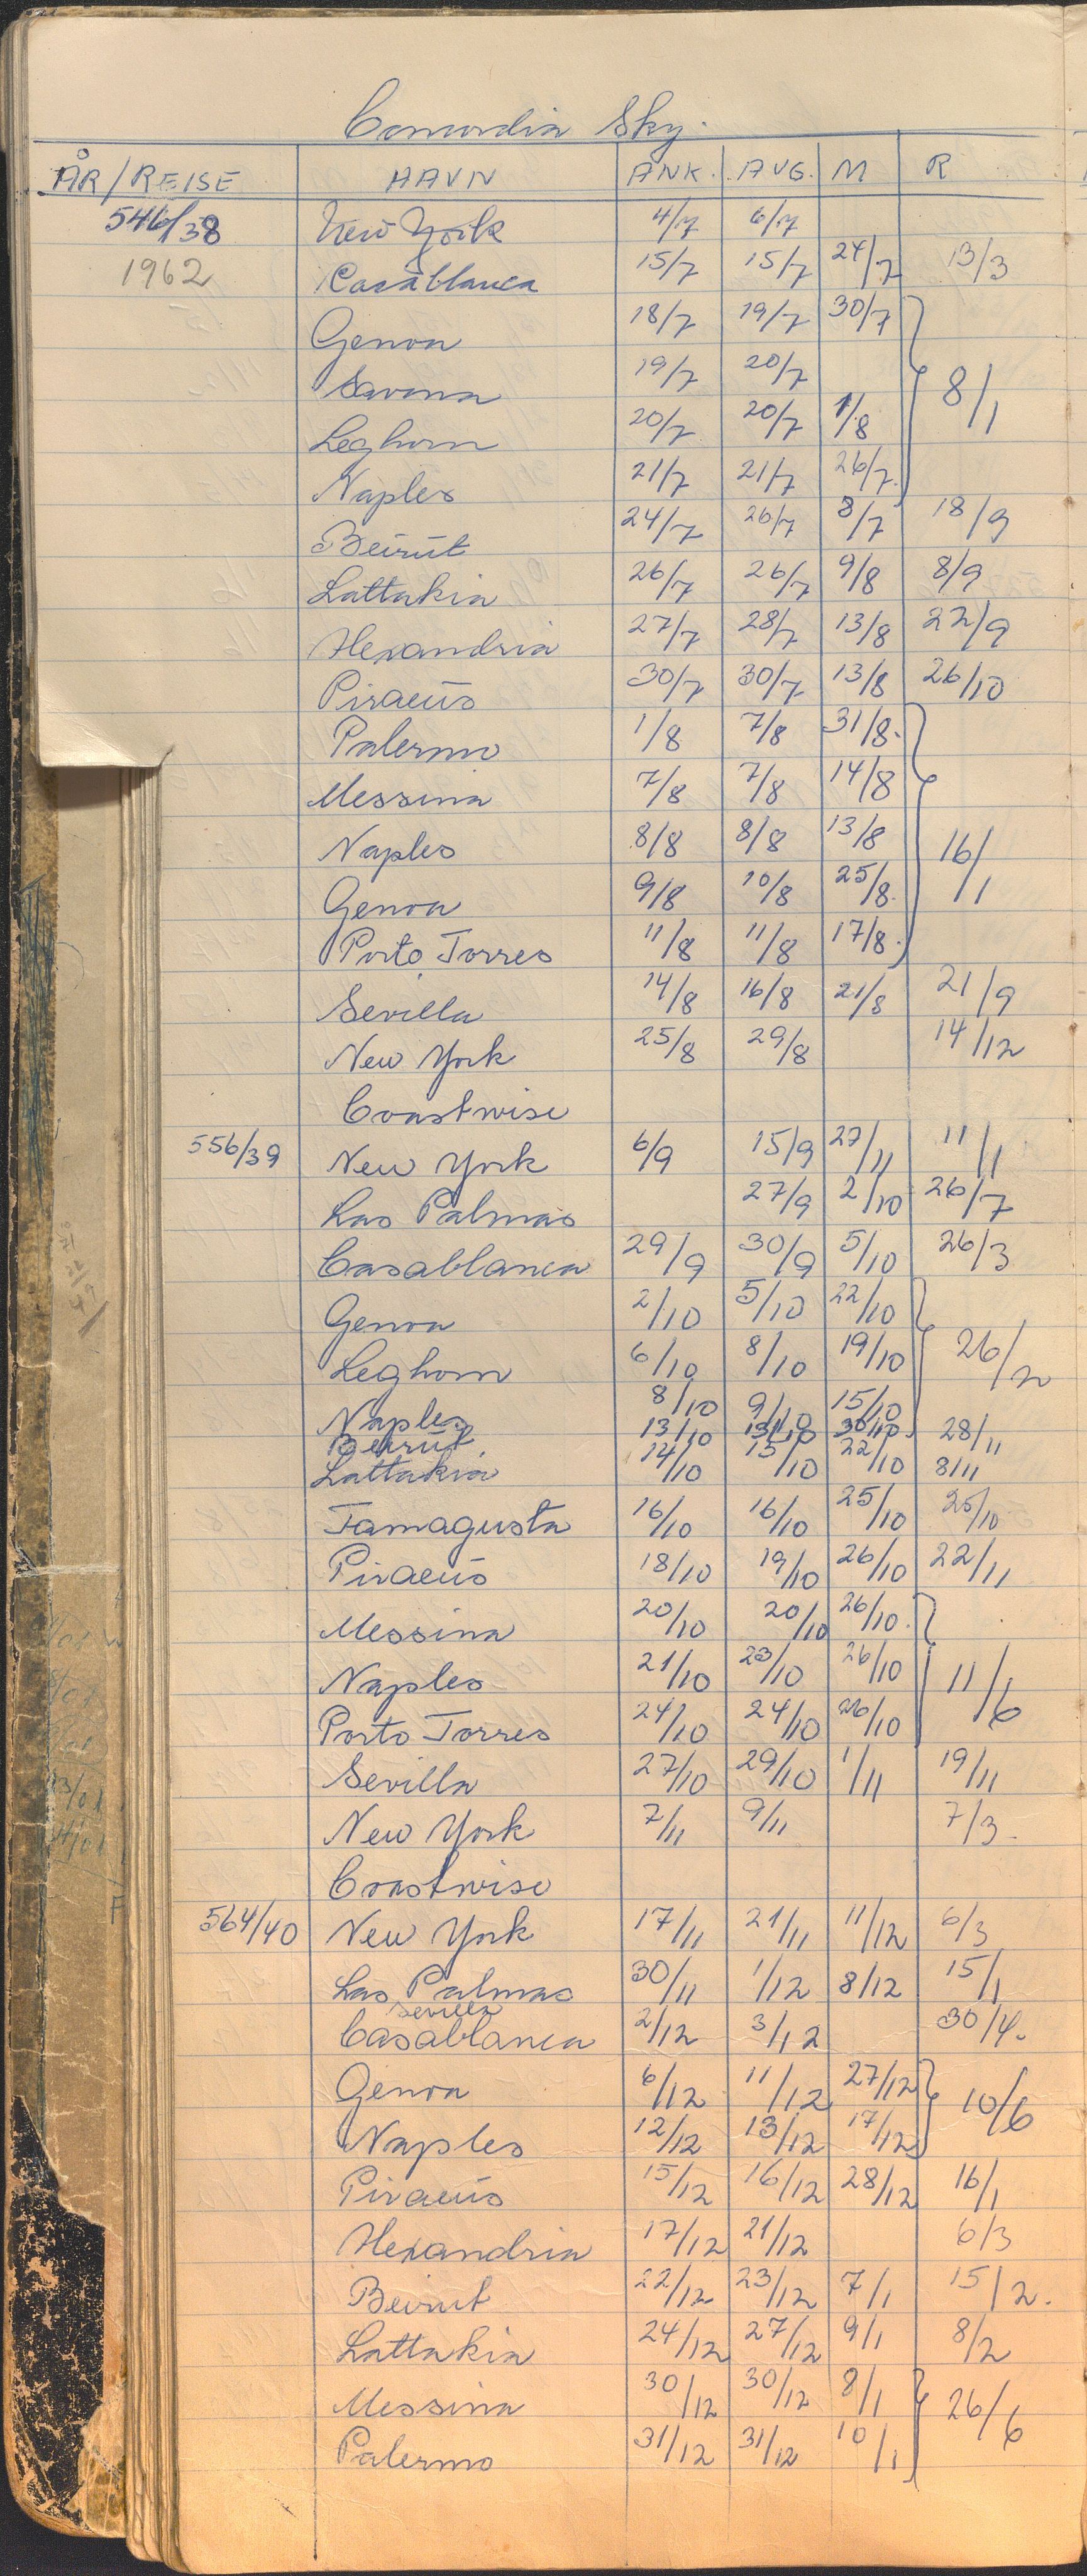 Concordia Sky.
ÅR/REISE HAVN ANK. AVG. M R
546/38 New York 4/7 6/7
1962 Casablanca 15/7 15/7 24/7 13/3
Genoa 18/7 19/7 30/7
Savona 19/7 20/7 8/1
Leghorn 20/7 20/7 1/8
Naples 21/7 21/7 26/7.
Beirut 24/7 26/7 8/7 18/9
Lattakia 26/7 26/7 9/8 8/9
Alexandria 27/7 28/7 13/8 22/9
Piraeus 30/7 30/7 13/8 26/10
Palermo 1/8 7/8 31/8.
Messina 7/8 7/8 14/8
Naples 8/8 8/8 13/8 16/1
Genoa 9/8 10/8 25/8.
Porto Torres 11/8 11/8 17/8.
Sevilla 14/8 16/8 21/8 21/9
New York 25/8 29/8 14/12
Coastwise
556/39 New York 6/9 15/9 27/11 11/1
Las Palmas 27/9 2/10 26/7
Casablanca 29/9 30/9 5/10 26/3
Genoa 2/10 5/10 22/10
Leghorn 6/10 8/10 19/10 26/2
Naples 8/10 9/10 15/10
Beirut 13/10 13/10 30/10 28/11
Lattakia 14/10 15/10 22/10 8/11
Famagusta 16/10 16/10 25/10 25/10
Piraeus 18/10 19/10 26/10 22/11
Messina 20/10 20/10 26/10.
Naples 21/10 23/10 26/10 11/6
Porto Torres 24/10 24/10 26/10
Sevilla 27/10 29/10 1/11 19/11
New York 7/11 9/11 7/3.
Coastwise
564/40 New York 17/11 21/11 11/12 6/3
Las Palmas 30/11 1/12 8/12 15/1
Sevilla
Casablanca 2/12 3/12 30/4.
Genoa 6/12 11/12 27/12 10/6
Naples 12/12 13/12 17/12
Piraeus 15/12 16/12 28/12 16/1
Alexandria 17/12 21/12 6/3
Beirut 22/12 23/12 7/1 15/2.
Lattakia 24/12 27/12 9/1 8/2
Messina 30/12 30/12 8/1 26/6
Palermo 31/12 31/12 10/1